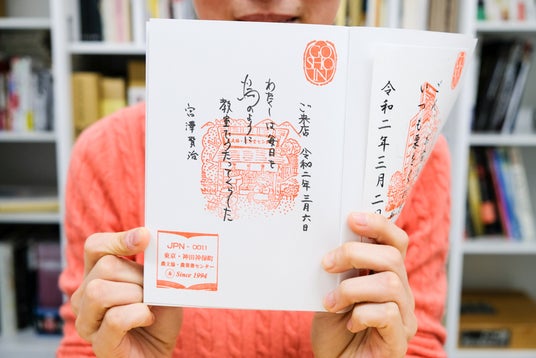 GO
SHO
IN
ご来店 令和二年三月六日
わたくしは毎日を
鳥のように
教室でうたってくらした
宮澤賢治
JPN - 0011
東京・神田神保町
農文協・農業書センター
Since 1994
令和二年三月二